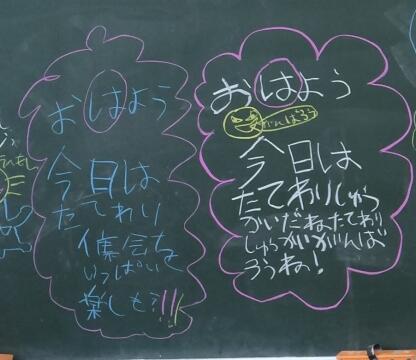 おはよう
今日は
たてわり
集会を
いっぱい
楽しもう!!!
おはよう
がんばろう
今日は
たてわりしゅう
かいだねたてわり
しゅうかいがんば
ろうね!